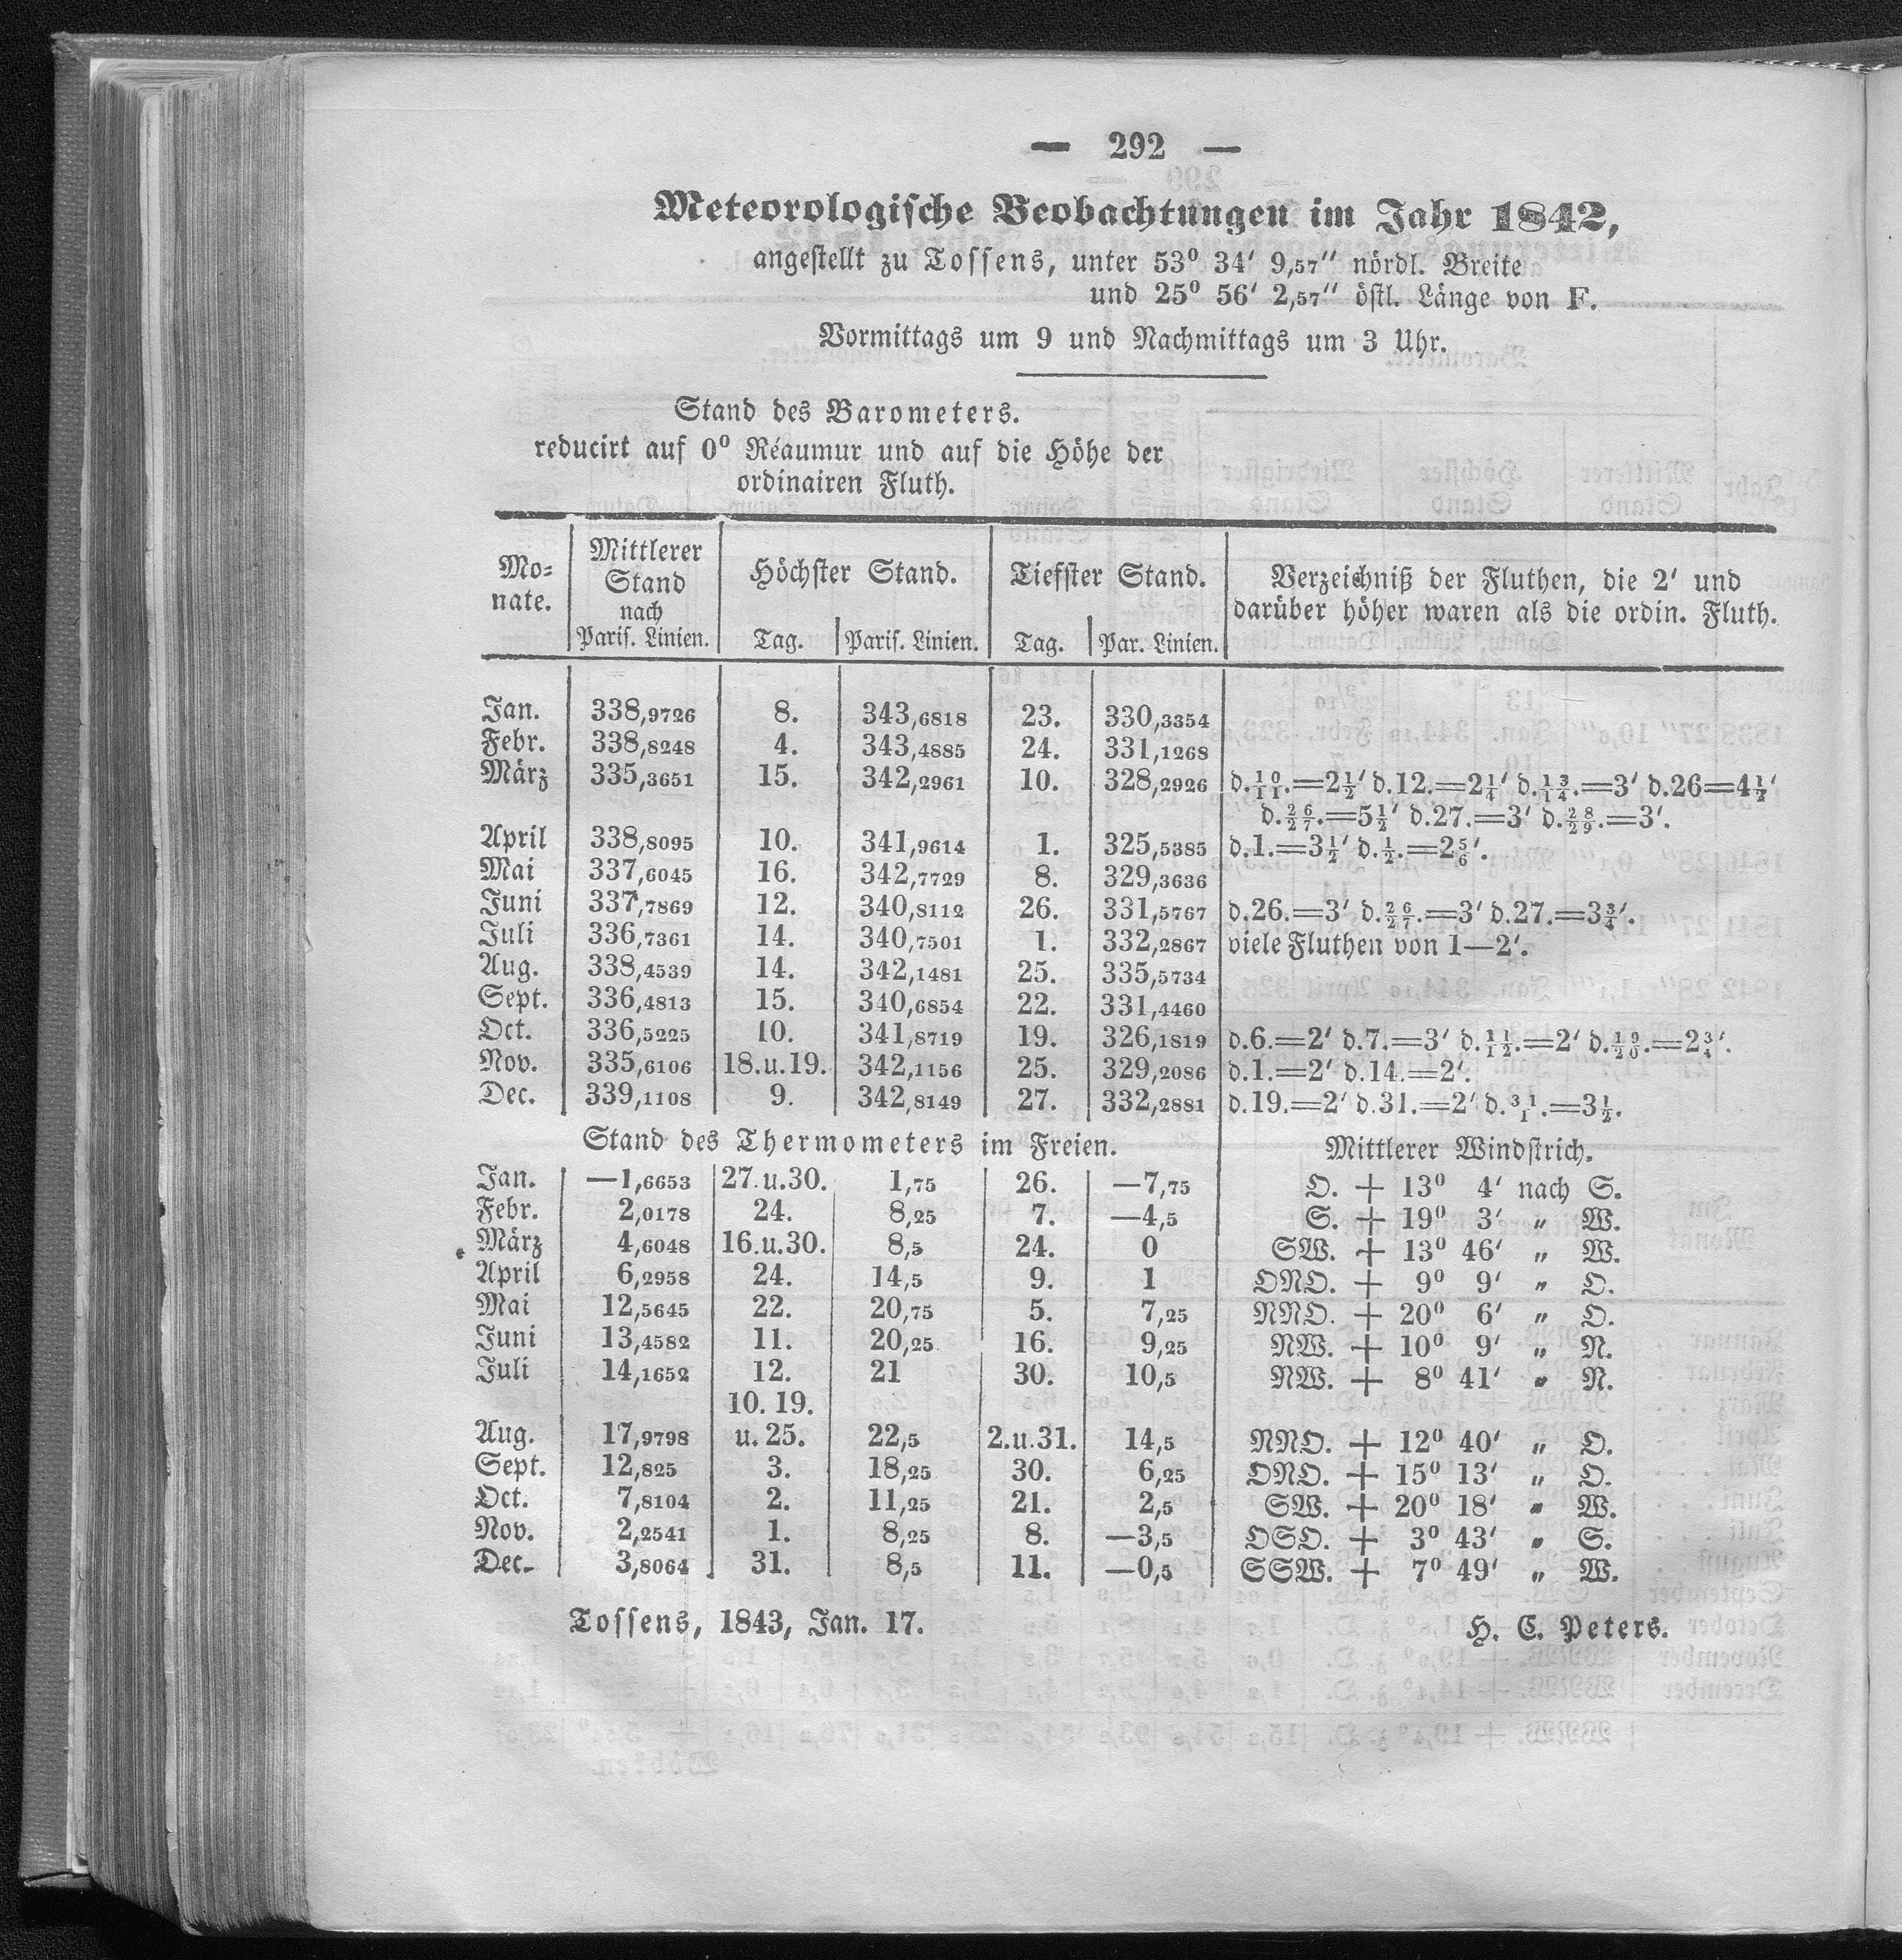 — 292 —
Meteorologische Beobachtungen im Jahr 1842,
angestellt zu Tossens, unter 53° 34′ 9,57″ nördl. Breite
und 25° 56′ 2,57″ östl. Länge von F.
Vormittags um 9 und Nachmittags um 3 Uhr.
Stand des Barometers.
reducirt auf 0° Réaumur und auf die Höhe der
ordinairen Fluth.
Mo-
nate.
Mittlerer
Stand
nach
Paris. Linien.
Höchster Stand.
Tag. Paris. Linien.
Tiefster Stand.
Tag. Par. Linien.
Verzeichniß der Fluthen, die 2′ und
darüber höher waren als die ordin. Fluth.
Jan. 338,9726 8. 343,6818 23. 330,3354
Febr. 338,8248 4. 343,4885 24. 331,1268
März 335,3651 15. 342,2961 10. 328,2926 d.10/11.=2½′ d.12.=2¼′ d.13/14.=3′ d.26=4½′
d.26/27.=5½′ d.27.=3′ d.28/29.=3′.
April 338,8095 10. 341,9614 1. 325,5385 d.1.=3½′ d.½.=2⅚′.
Mai 337,6045 16. 342,7729 8. 329,3636
Juni 337,7869 12. 340,8112 26. 331,5767 d.26.=3′ d.26/27.=3′ d.27.=3¾′.
Juli 336,7361 14. 340,7501 1. 332,2867 viele Fluthen von 1—2′.
Aug. 338,4539 14. 342,1481 25. 335,5734
Sept. 336,4813 15. 340,6854 22. 331,4460
Oct. 336,5225 10. 341,8719 19. 326,1819 d.6.=2′ d.7.=3′ d.11/12.=2′ d.19/20.=2¾′.
Nov. 335,6106 18.u.19. 342,1156 25. 329,2086 d.1.=2′ d.14.=2′.
Dec. 339,1108 9. 342,8149 27. 332,2881 d.19.=2′ d.31.=2′ d.31/1.=3½.
Stand des Thermometers im Freien. Mittlerer Windstrich.
Jan. —1,6653 27.u.30. 1,75 26. —7,75 O. + 13° 4′ nach S.
Febr. 2,0178 24. 8,25 7. —4,5 S. + 19° 3′ „ W.
März 4,6048 16.u.30. 8,5 24. 0 SW. + 13° 46′ „ W.
April 6,2958 24. 14,5 9. 1 ONO. + 9° 9′ „ O.
Mai 12,5645 22. 20,75 5. 7,25 NNO. + 20° 6′ „ O.
Juni 13,4582 11. 20,25 16. 9,25 NW. + 10° 9′ „ N.
Juli 14,1652 12. 21 30. 10,5 NW. + 8° 41′ „ N.
10. 19.
Aug. 17,9798 u. 25. 22,5 2.u.31. 14,5 NNO. + 12° 40′ „ O.
Sept. 12,825 3. 18,25 30. 6,25 ONO. + 15° 13′ „ O.
Oct. 7,8104 2. 11,25 21. 2,5 SW. + 20° 18′ „ W.
Nov. 2,2541 1. 8,25 8. —3,5 OSO. + 3° 43′ „ S.
Dec. 3,8064 31. 8,5 11. —0,5 SSW. + 7° 49′ „ W.
Tossens, 1843, Jan. 17. H. C. Peters.